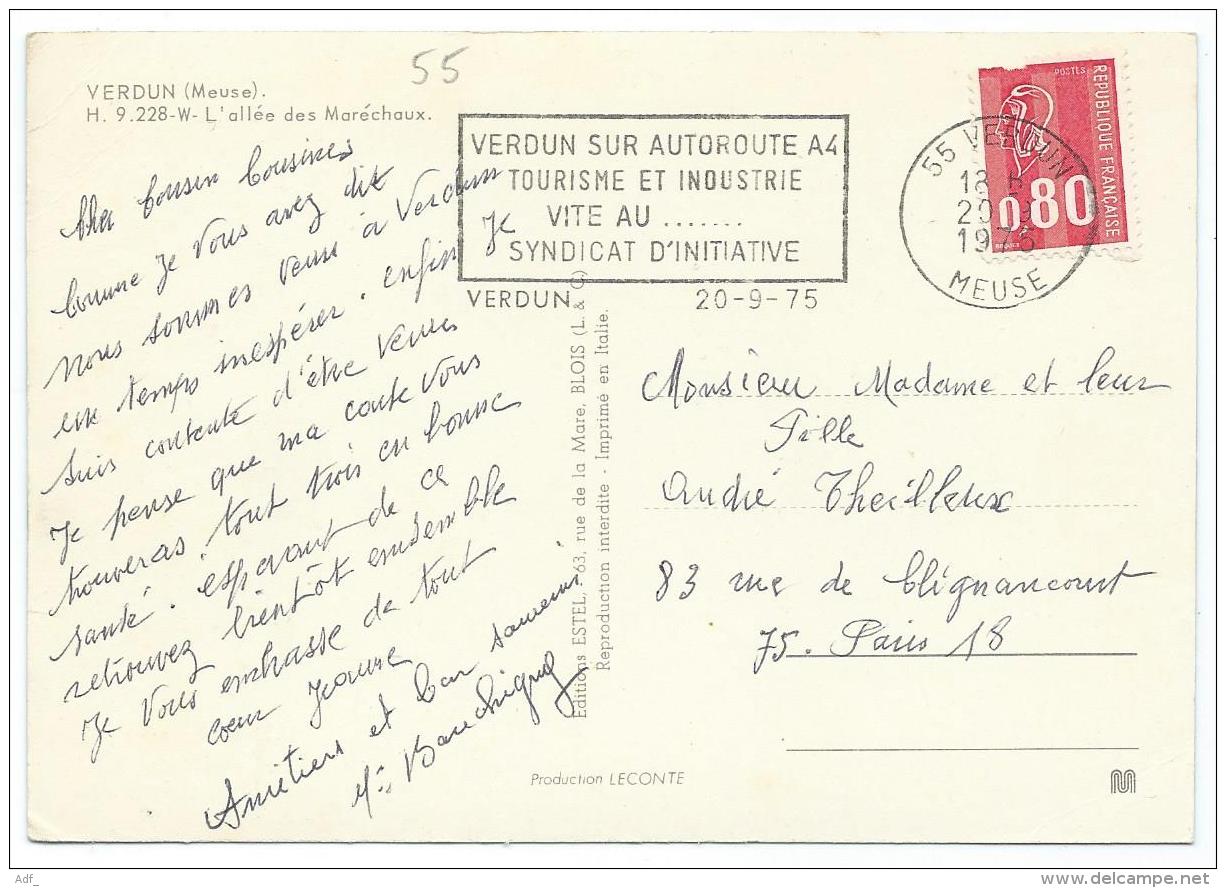 55
VERDUN (Meuse).
H. 9.228-W- L'allée des Maréchaux.
Cher Cousin Cousines
Comme je vous avez dit
nous sommes venu à Verdun
un temps inespérer. enfin Je
suis contente d'être venue
Je pense que ma carte vous
trouveras tout trois en bonne
santé. espérant de ce
retrouvez bientôt ensemble
Je vous embrasse de tout
coeur Jeanne
Amitiers et bon souvenir
VERDUN SUR AUTOROUTE A4
TOURISME ET INDUSTRIE
VITE AU .......
SYNDICAT D'INITIATIVE
VERDUN 20-9-75
55 VERDUN
18 H
20-9
1975
MEUSE
POSTES
REPUBLIQUE FRANÇAISE
0,80
Editions ESTEL, 63, rue de la Mare, BLOIS (L. & C)
Reproduction interdite - Imprimé en Italie.
Monsieur Madame et leur
Fille
André Theilleux
83 rue de Clignancourt
75. Paris 18
Production LECONTE
M
Adf_
delcampe.net